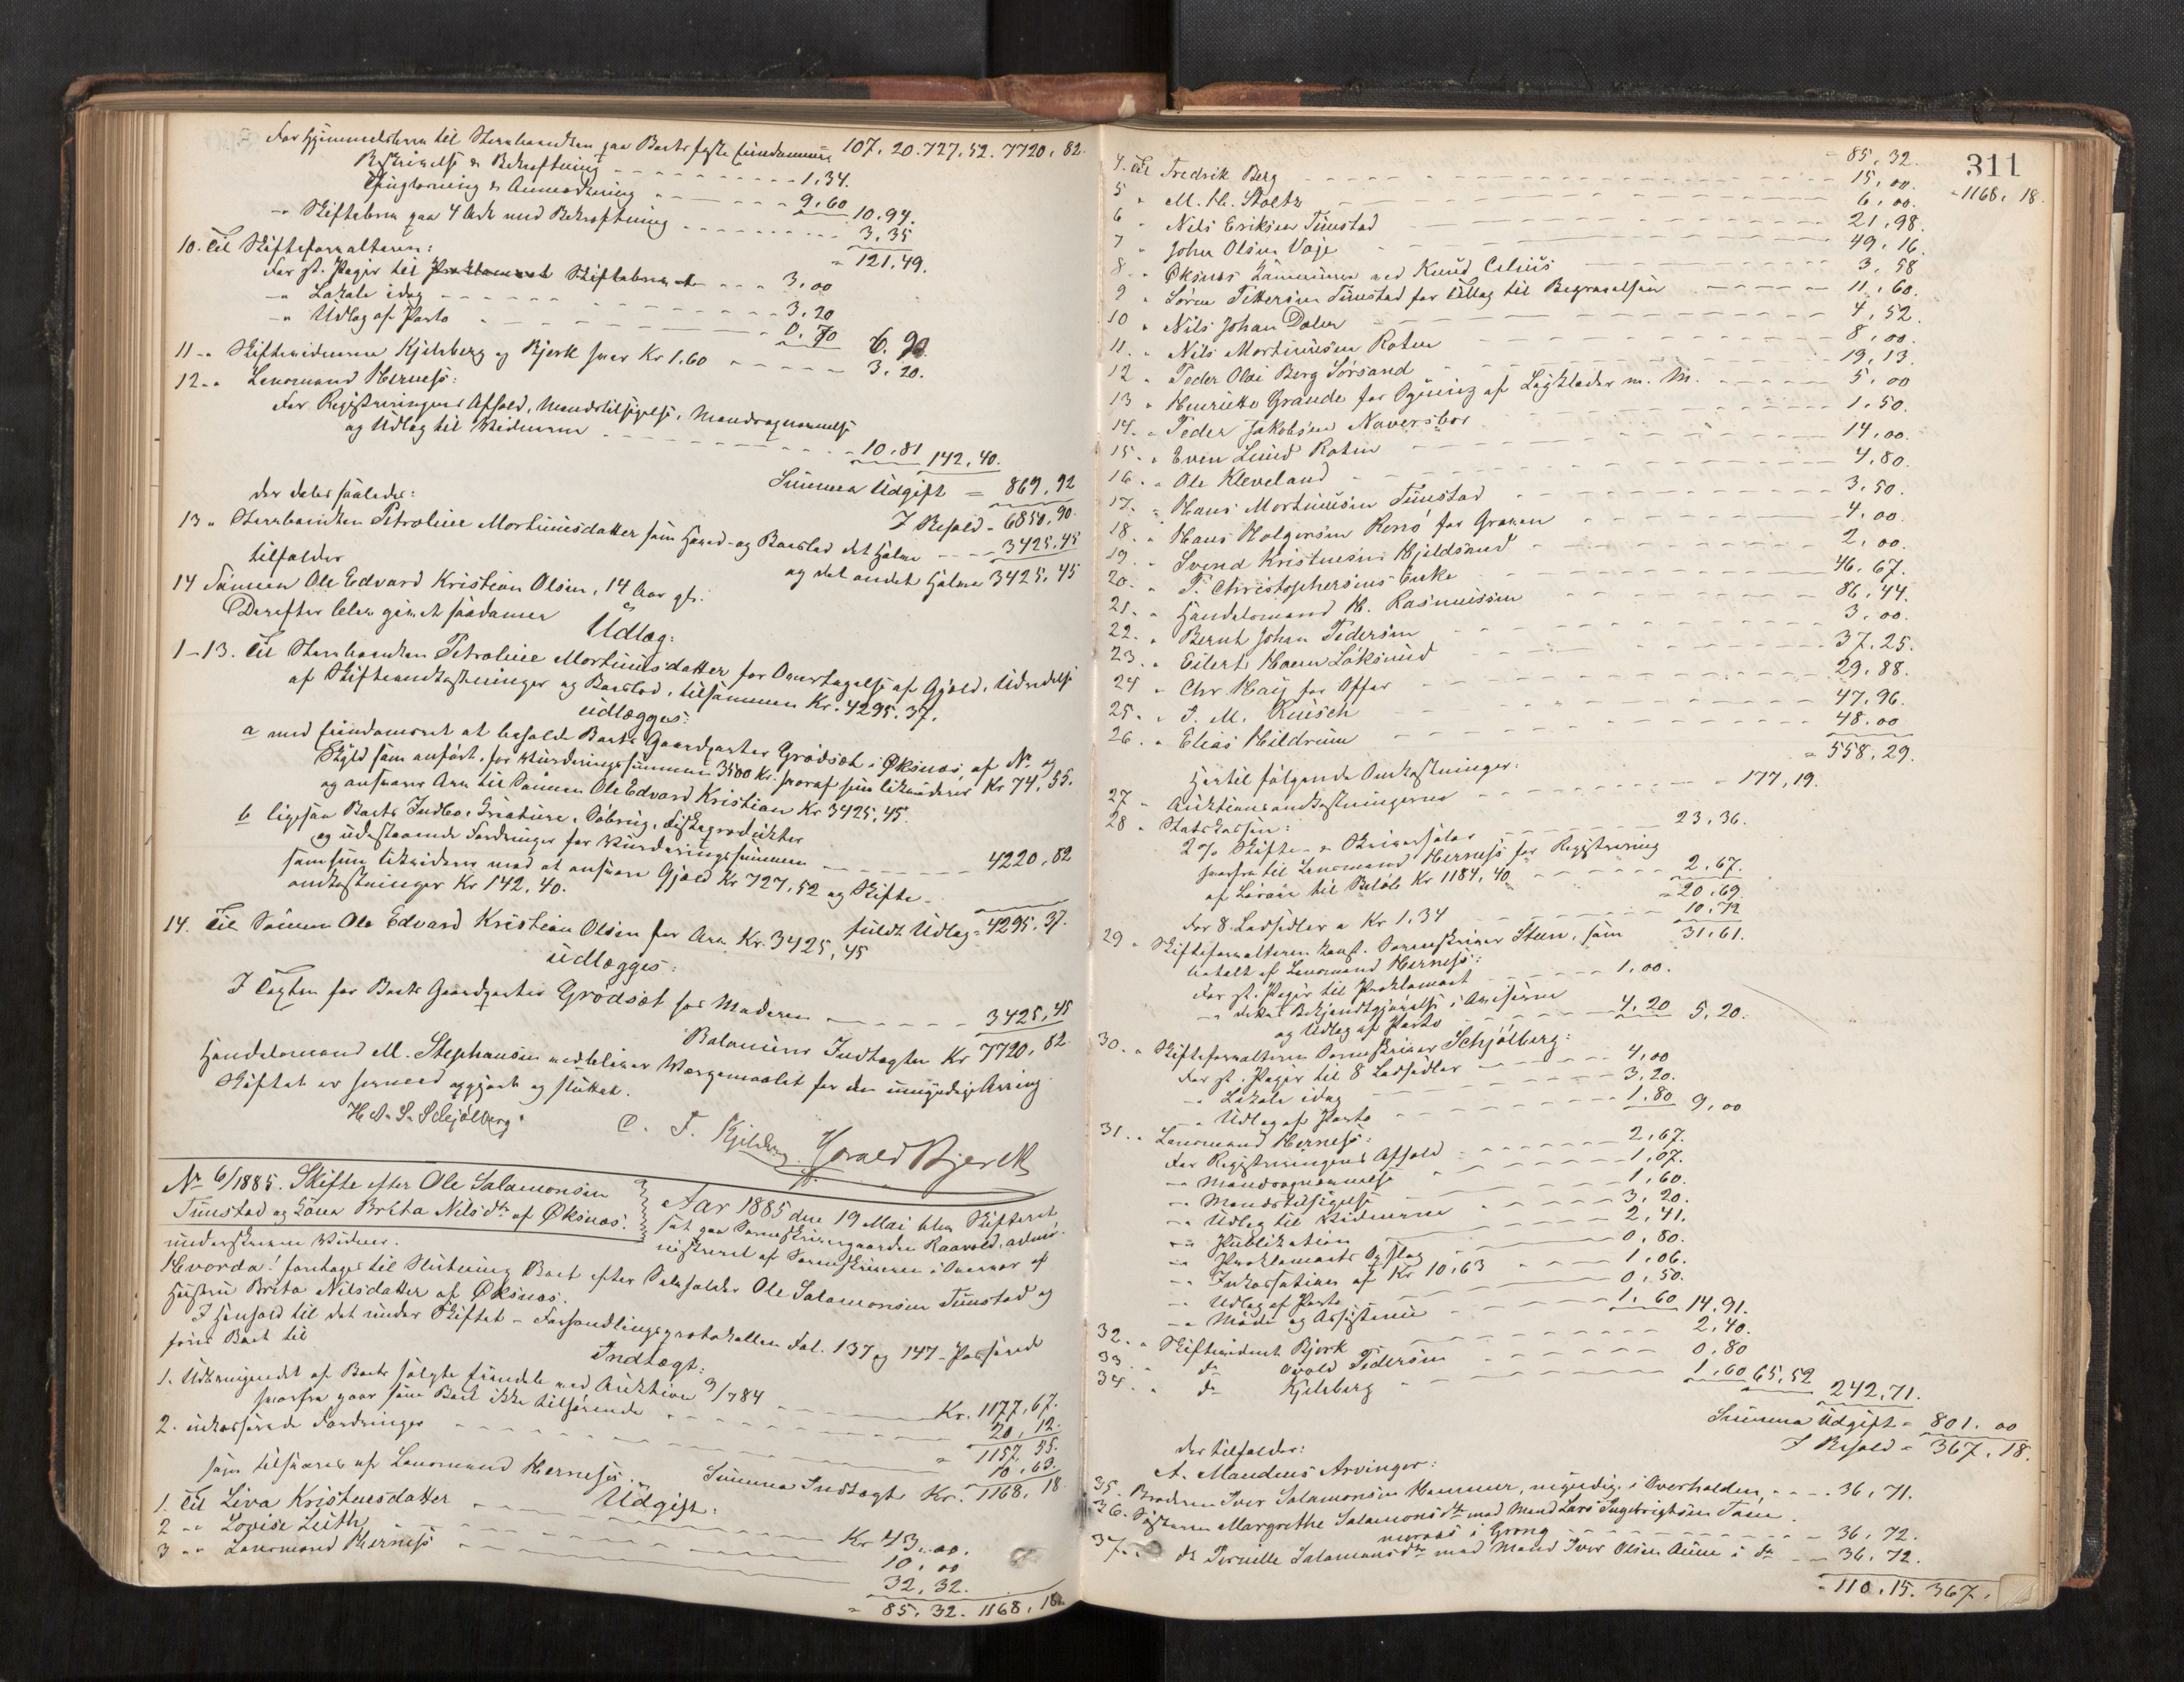 For Hjemmelsbrev til Stervboenken paa Boets faste Eiendomme 107,20. 727,52. 7720,82.
Beskrivelse & Bekræftning 1,34.
Thinglæsning & Anmærkning 9,60 10,94.
-" Skiftebrev paa 4 Ark med Bekræftning 3,35
" 121,49.
10. Til Skifteforvalteren:
For st. Papir til Proklamaet Skiftebrevet 3,00
-" Lokale idag 3,20
-" Udlæg af Porto 0,70 6,90.
11 -" Skiftevidnerne Kjelsberg og Bjerk hver Kr 1.60 3,20.
12 -" Lensmand Herness:
For Registreringens Afhold, Mandstilsigelse, Mandsopnævnelse
og Udlæg til Vidnerne 10,81 142,40.
Summa Udgift = 869,92
der deles saaledes: I Behold - 6850,90.
13 " Stervboenken Petroline Mortinusdatter som Hoved- og Boeslod det halve 3425,45
tilfalder og det andet halve 3425,45
14 Sønnen Ole Edvard Kristian Olsen, 14 Aar gl.
Derefter blev gjort saadanne
Udlæg:
1-13. Til Stervboenken Petroline Mortinusdatter for Overtagelse af Gjæld, Udredelse
af Skifteomkostninger og Boeslod, tilsammen Kr. 4295.37.
udlægges:
a med Eiendomsret at beholde Boets Gaardparter Grødsæt i Øksnæs, af No og
Skyld som anført, for Vurderingssummen 3500 Kr. hvoraf hun likviderer Kr 74,55.
og ansvarer Arv til Sønnen Ole Edvard Kristian Kr 3425,45.
b ligesaa Boets Indbo, Kreature, Søbrug, Fiskeprodukter
og udestaaende Fordringer for Vurderingssummen 4220,82
som hun likviderer med at ansvare Gjæld Kr 727,52 og Skifte-
omkostninger Kr 142,40.
fuldt Udlæg = 4295.37.
14. Til Sønnen Ole Edvard Kristian Olsen for Arv Kr. 3425,45
udlægges:
I Taxten for Boets Gaardparter Grødsæt hos Moderen 3425,45
Balancerer Indtægten Kr 7720,82
Handelsmand M. Stephansen vedbliver Værgemaalet for den umyndige Arving.
Skiftet er hermed opgjort og sluttet.
H. A. S. Schjølberg. C. F. Kjelsberg. Harald Bjerck
No 6/1885. Skifte efter Ole Salamonsen
Tunstad og Kone Brita Nilsdtr af Øksnæs.
Aar 1885 den 19 Mai blev Skifteret
sat paa Sorenskrivergaarden Raavold, admi-
nistreret af Sorenskriveren i Overvær af
underskrevne Vidner.
Hvorda! foretoges til Slutning Boet efter Selveier Ole Salamonsen Tunstad og
Hustru Brita Nilsdatter af Øksnæs.
I Henhold til det under Skiftet - Forhandlingsprotokollen Fol. 137 og 147 - Passerede
føres Boet til
Indtægt:
1. Udbringendet af Boets solgte Eiendele ved Auktion 9/7 84 Kr. 1177,67.
hvorfra gaar som Boet ikke tilhørende 20,12.
" 1157,55.
2. indkasserede Fordringer 10,63.
som tilsvares af Lensmand Herness. Summa Indtægt Kr. 1168,18.
Udgift:
1. Til Liva Kristensdatter Kr 43,00.
2 -" Lovise Leith 10,00
3 -" Lensmand Herness 32,32.
" 85,32. 1168,18.
311
" 85,32. " 1168,18.
4. Til Fredrik Berg 15,00.
5 " M. H. Stoltz 6,00.
6 " Nils Eriksen Tunstad 21,98.
7 " Johan Olsen Vaje 49,16.
8 " Øksnæs Kommune ved Knud Celius 3,58
9 " Søren Pettersen Tunstad for Udlæg til Begravelsen 11,60.
10 " Nils Johan Daler 4,52.
11. " Nils Mortinusen Roten 8,00.
12 " Peder Olai Berg Sørsand 19,13.
13 " Henriette Grande for Syning af Ligklæder m. M. 5,00
14. " Peder Jakobsen Naversbor 1,50.
15. " Even Lund Roten 14,00.
16. " Ole Kleveland 4,80.
17. " Hans Mortinusen Tunstad 3,50.
18. " Hans Holgersen Rensø for Graven 4,00.
19. " Svend Kristensen Kjeldsand 2,00.
20. " P. Christophersens Enke 46,67.
21. " Handelsmand H. Rasmussen 86,44.
22. " Bernt Johan Pedersen 3,00.
23. " Eilert Hoem Løksund 37,25.
24 " Chr. Haij for Offer 29,88.
25. " J. M. Kusch 47,96.
26. " Elias Hildrum 48,00
" 558,29.
Hertil følgende Omkostninger:
27 " Auktionsomkostningerne 177,19.
28 " Statskassen:
2% Skifte- & Skriversalær 23,36.
hvorfra til Lensmand Herness for Registrering
af Løsøre til Beløb Kr 1184,40 2,67.
" 20,69.
For 8 Lodsedler a Kr 1,34 10,72
31,61.
29 " Skifteforvalteren konst. Sorenskriver Steen, som
betalt af Lensmand Herness:
For st. Papir til Proklamaet 1,00.
-" dettes Bekjendtgjørelse i Aviserne
og Udlæg af Porto 4,20 5,20.
30. " Skifteforvalteren Sorenskriver Schjølberg:
For st. Papir til 8 Lodsedler 4,00
-" Lokale idag 3,20.
-" Udlæg af Porto 1,80 9,00
31. " Lensmand Herness:
For Registreringens Afhold 2,67.
-" Mandsopnævnelse 1,07.
-" Mandstilsigelse 1,60.
-" Udlæg til Vidnerne 3,20.
-" Publikation 2,41.
-" Proklamaets Opslag 0,80.
-" Inkassation af Kr 10,63 1,06.
-" Udlæg af Porto 0,50.
-" Møde og Assistence 1,60 14,91.
32. " Skiftevidnet Bjerk 2,40.
33. " do Arold Pedersen 0,80
34. " do Kjelsberg 1,60 65,52
242,71.
Summa Udgift = 801,00
I Behold = 367,18.
der tilfalder:
A. Mandens Arvinger:
35. Broderen Iver Salamonsen Hammer, myndig, i Overhalden, 36,71.
36. Søsteren Margrethe Salamonsdtr med Mand Lars Ingebrigtsen Tøm-
meraas i Grong 36,72.
37. " do Pernille Salamonsdtr med Mand Iver Olsen Aune i do 36,72.
" 110,15. 367,